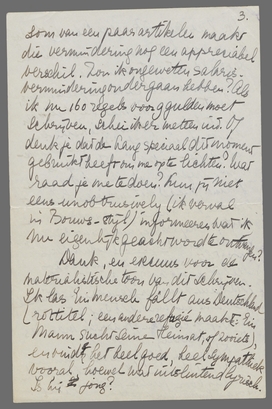 3.
som van een paar artikelen maakt
die vermindering nog een appreciabel
verschil. Zou ik ongeweten salaris-
vermindering ondergaan hebben? Als
ik nu 160 regels voor gulden moet
schrijven, schei ik er met een uit. Of
denk je dat de hang speciaal dit moment
gebruikt heeft om me op te lichten? Wat
raad je me te doen? Kun jij niet
eens unobtrusively (ik verval
in Zouws-stijl) informeeren wat ik
nu eigenlijk geacht word te ontvangen?
Dank, en excuus voor de
materialistische toon van dit schrijven.
Ik las Ein Mensch fällt aus Deutschland
(rottitel; een andere refugié maakt: Ein
Mann sucht seine Heimat, of zooiets)
en vond het heel goed, heel sympathiek
vooral, hoewel wat uitsluitend lyrisch.
Is hij jong?